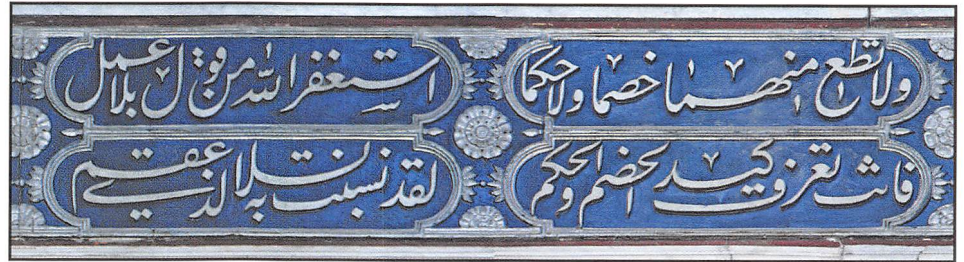 ولا تطع منهما خصما ولا حكما
فانت تعرف كيد الخصم والحكم
استغفر الله من قول بلا عمل
لقد نسبت به نسلا لذي عقم